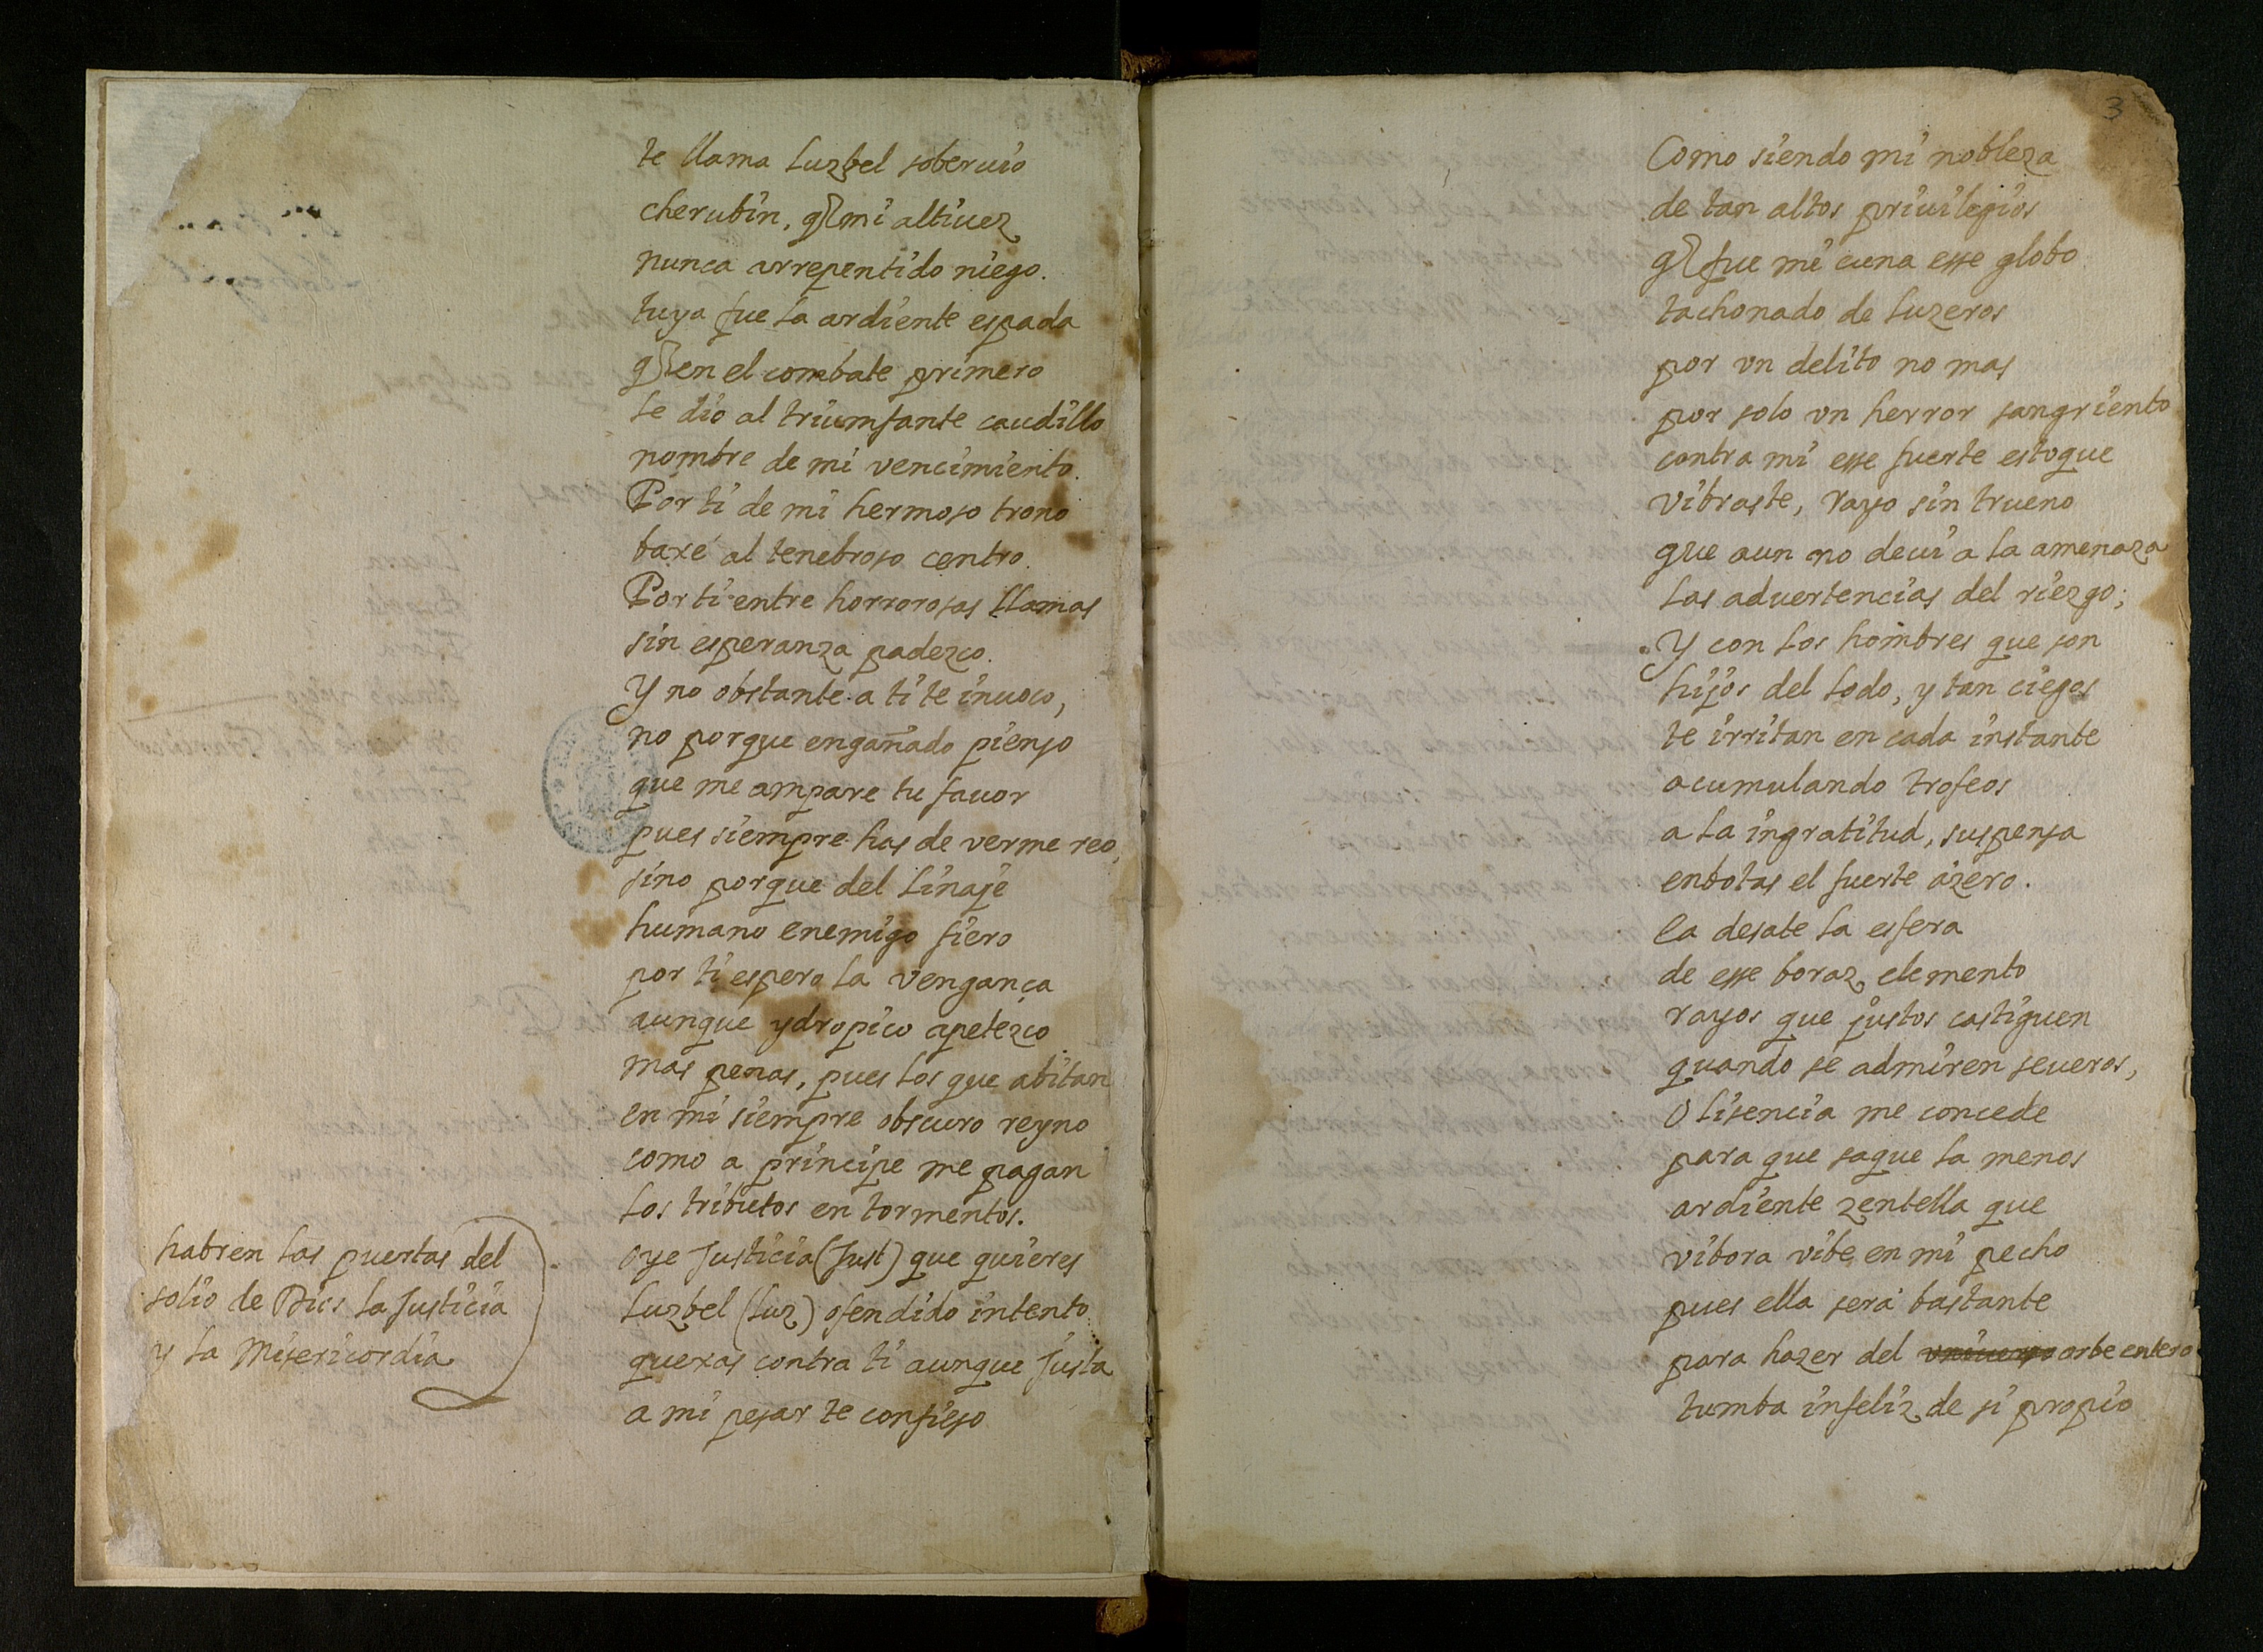 te llama Luzbel soberuio
cherubin, q̃ mi altiuez
nunca arrepentido niego.
tuya fue la ardiente espada
q̃ en el combate primero
le dio al triumfante caudillo
nombre de mi vencimiento.
Por ti de mi hermoso trono
baxé al tenebroso centro.
Por ti entre horrorosas llamas
sin esperanza padezco.
Y no obstante a ti te inuoco,
no porque engañado pienso
que me ampare tu fauor
pues siempre has de verme reo,
sino porque del linaje
humano enemigo fiero
por ti espero la vengança
aunque ydropico apetezco
mas penas, pues los que abitan
en mi siempre obscuro reyno
como a principe me pagan
los tributos en tormentos.
habren las puertas del
solio de Dios la Justicia
y la Misericordia
oye Justicia (Just) que quieres
Luzbel (Luz) ofendido intento
quexas contra ti aunque Justa
a mi pesar te confieso
3
Como siendo mi nobleza
de tan altos priuilegios
q̃ fue mi cuna esse globo
tachonado de luzeros
por vn delito no mas
por solo vn herror sangriento
contra mi esse fuerte estoque
vibraste, rayo sin trueno
que aun no deui a la amenaza
las aduertencias del riezgo;
Y con los hombres que son
hijos del lodo, y tan ciegos
te irritan en cada instante
acumulando trofeos
a la ingratitud, suspensa
enbotas el fuerte azero.
ea desate la esfera
de esse boraz elemento
rayos que justos castiguen
quando se admiren seueros,
o lisencia me concede
para que saque la menos
ardiente zentella que
vibora vibe en mi pecho
pues ella será bastante
para hazer del vniuerso orbe entero
tumba infeliz de si propio